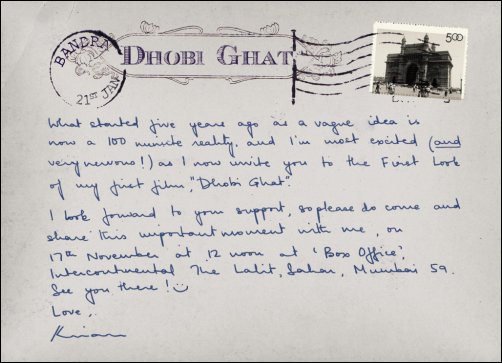 BANDRA
21ST JAN
DHOBI GHAT
5.00
What started five years ago as a vague idea is
now a 100 minute reality. and I'm most excited (and
very nervous!) as I now invite you to the First Look
of my first film, "Dhobi Ghat".
I look forward to your support, so please do come and
share this important moment with me, on
17th November at 12 noon at 'Box Office',
Intercontinental The Lalit, Sahar, Mumbai 59.
See you there!
Love,
Kiran